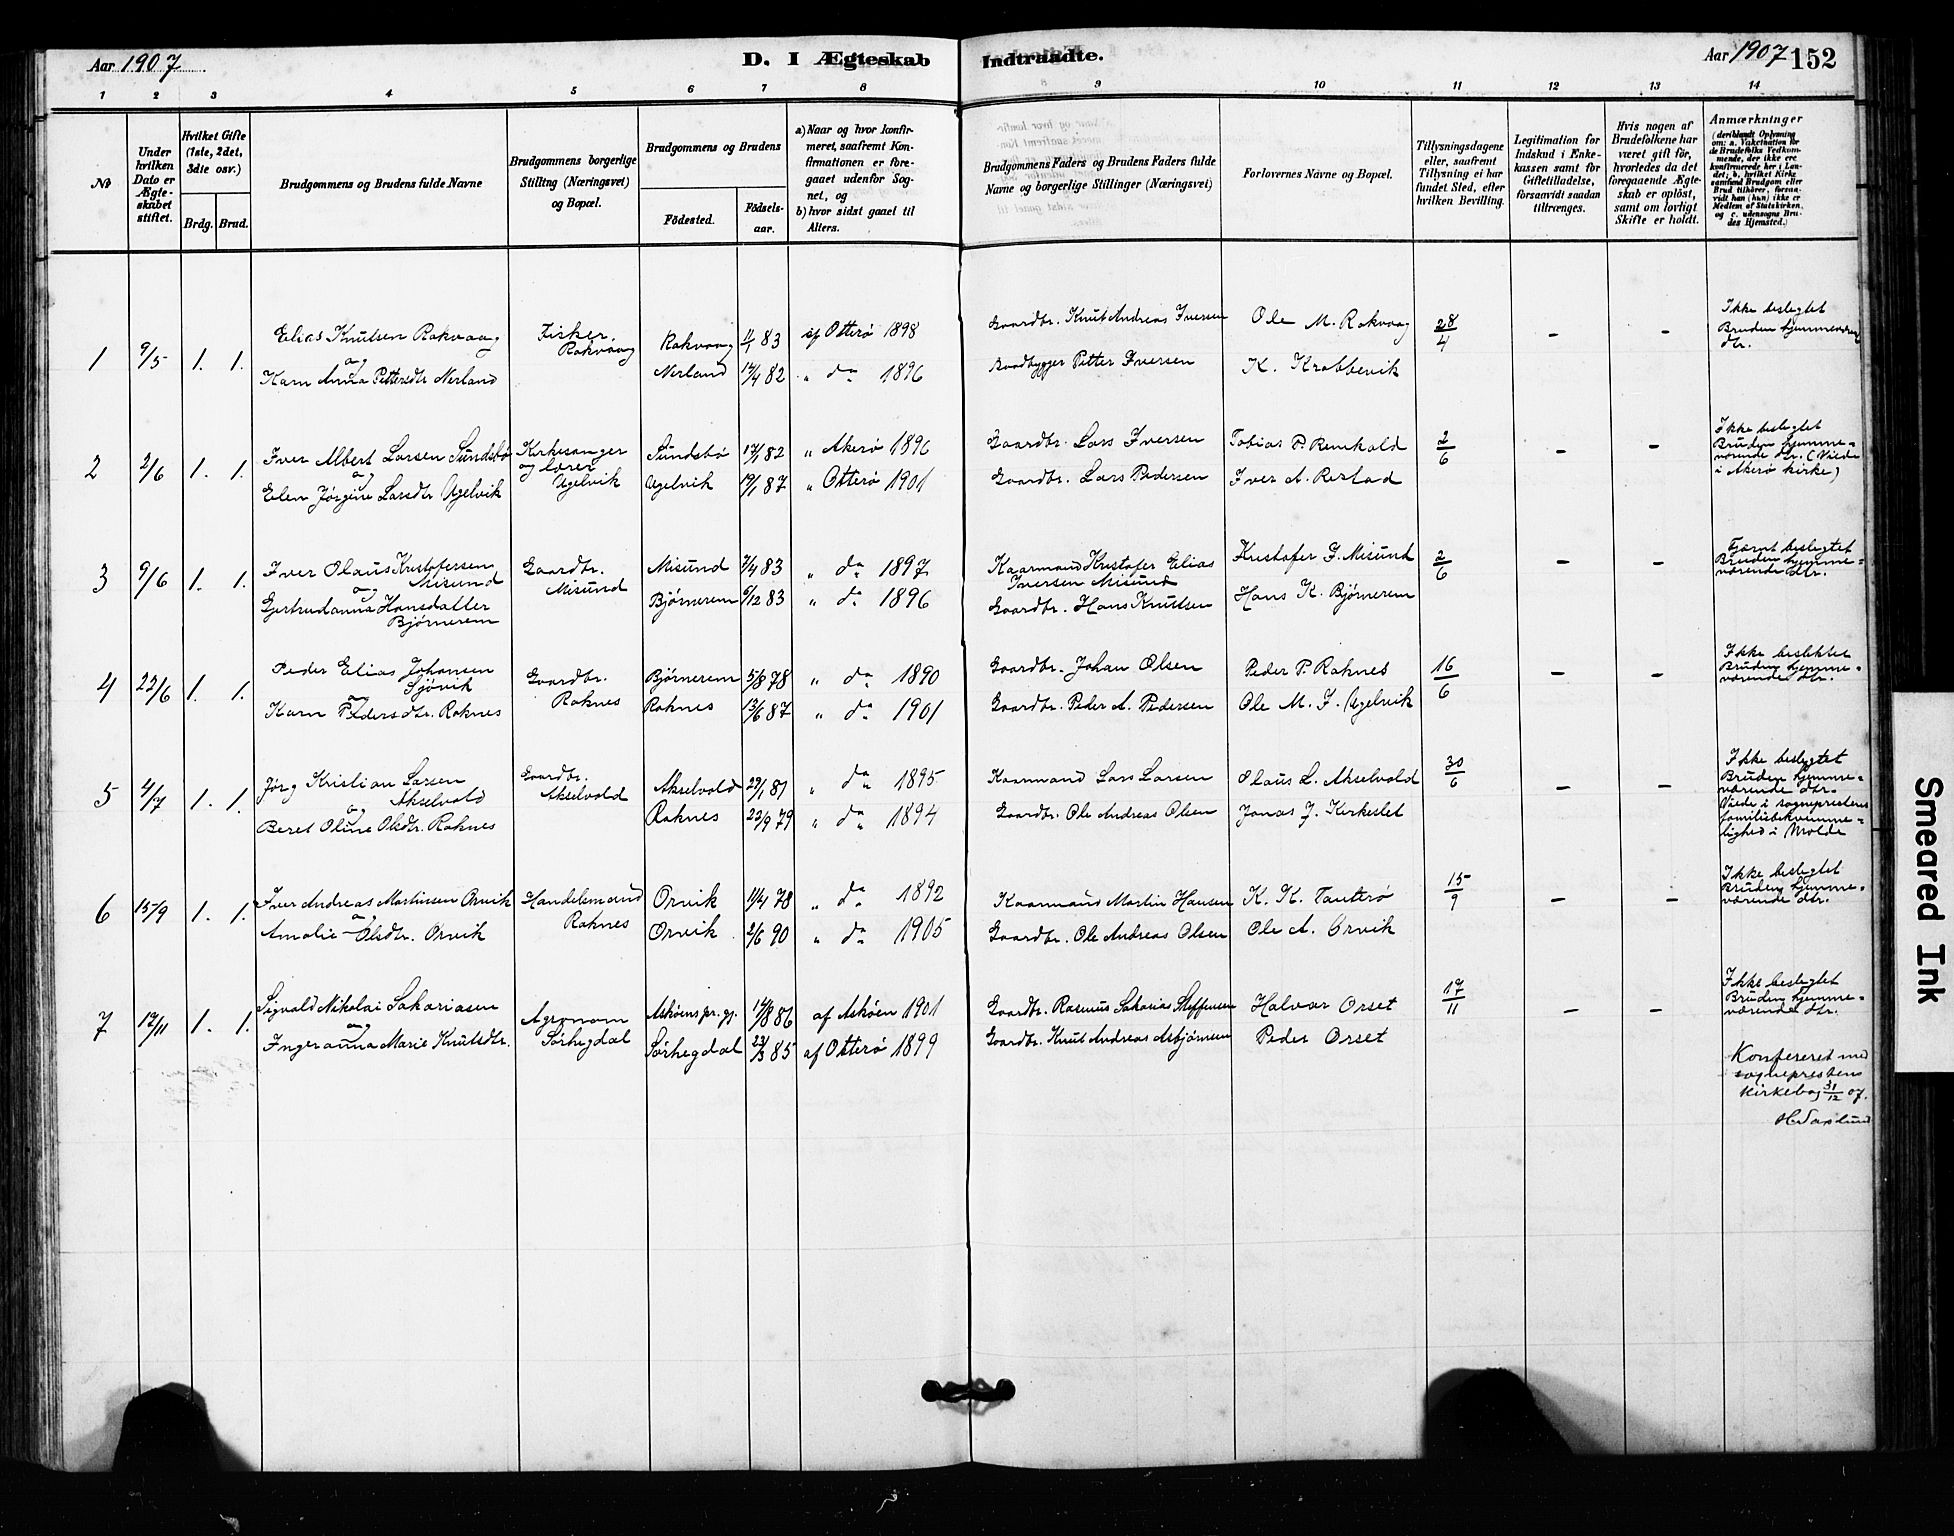 Aar 1907
D. I Ægteskab
Indtraadte.
Aar 1907
152
1 2 3 4 5 6 7 8 9 10 11 12 13 14
No
Under
hvilken
Dato er
Ægte-
skabet
stiftet.
Hvilket Gifte
(1ste, 2det,
3die osv.)
Brdg. Brud.
Brudgommens og Brudens fulde Navne
Brudgommens borgerlige
Stilling (Næringsvei)
og Bopæl.
Brudgommens og Brudens
Födested.
Födsels-
aar.
a) Naar og hvor konfir-
meret, saafremt Kon-
firmationen er fore-
gaaet udenfor Sog-
net, og
b) hvor sidst gaaet til
Alters.
Brudgommens Faders og Brudens Faders fulde
Navne og borgerlige Stillinger (Næringsvei)
Forlovernes Navne og Bopæl.
Tillysningsdagene
eller, saafremt
Tillysning ei har
fundet Sted, efter
hvilken Bevilling.
Legitimation for
Indskud i Enke-
kassen samt for
Giftetilladelse,
forsaavidt saadan
tiltrænges.
Hvis nogen af
Brudefolkene har
været gift för,
hvorledes da det
foregaaende Ægte-
skab er oplöst,
samt om lovligt
Skifte er holdt.
Anmærkninger
(deriblandt Oplysning
om: a. Vakcination for
de Brudefolks Vedkom-
mende, der ikke ere
konfirmerede her i Lan-
det; b. hvilket Kirke
samfund Brudgom eller
Brud tilhörer, forsaa-
vidt han (hun) ikke er
Medlem af Statskirken,
og c. udensogns Bru-
des Hjemsted.)
1 9/5 1. 1.
Elias Knutsen Rakvaag
og
Karn Anna Pettersdtr Nerland
Fisker
Rakvaag
Rakvaag 4/1 83
Nerland 14/4 82
af Otterö 1898
" da 1896
Gaardbr. Knut Andreas Iversen
Baadbygger Petter Iversen
Ole M. Rakvaag
K. Krabbevik
28/4
- -
Ikke beslegtet
Bruden hjemmeværende
dtr.
2 2/6 1. 1.
Iver Albert Larsen Sundsbö
og
Elen Jörgine Larsdtr Ugelvik
Kirkesanger
og lærer
Ugelvik
Sundsbö 17/1 82
Ugelvik 19/1 87
" Akerö 1896
" Otterö 1901
Gaardbr. Lars Iversen
Gaardbr. Lars Pedersen
Tobias P. Remkald
Iver A. Restad
2/6
- -
Ikke beslegtet
Bruden hjemme-
værende dtr. (Viede
i Akerö kirke)
3 9/6 1. 1.
Iver Olaus Kristofersen
Misund
og
Gjertrudanna Hansdatter
Bjørnerem
Gaardbr.
Misund
Misund 7/4 83
Bjørnerem 6/12 83
" da 1897
" da 1896
Kaarmand Kristofer Elias
Iversen Misund
Gaardbr. Hans Knutsen
Kristofer I. Misund
Hans K. Bjørnerem
2/6
- -
Fjernt beslegtet
Bruden hjemme-
værende dtr.
4 22/6 1. 1.
Peder Elias Johansen
Sjövik
og
Karn Pedersdtr. Raknes
Gaardbr.
Raknes
Bjørnerem 5/8 78
Raknes 13/6 87
" da 1890
" da 1901
Gaardbr. Johan Olsen
Gaardbr. Peder A. Pedersen
Peder P. Raknes
Ole M. I. Ugelvik
16/6
- -
Ikke beslektet
Bruden hjemme-
værende dtr.
5 4/7 1. 1.
Jörg Kristian Larsen
Akselvold
og
Beret Oline Olsdtr. Raknes
Gaardbr.
Akselvold
Akselvold 29/1 81
Raknes 22/9 79
" da 1895
" da 1894
Kaarmand Lars Larsen
Gaardbr. Ole Andreas Olsen
Olaus L. Akselvold
Jonas J. Kirkeslet
30/6
- -
Ikke beslegtet
Bruden hjemme-
værende dtr.
Viede i sogneprestens
familiebekvemme-
lighed i Molde
6 15/9 1. 1.
Iver Andreas Martinsen Orvik
og
Amalie Olsdtr. Orvik
Handelsmand
Raknes
Orvik 11/4 78
Orvik 2/6 90
" da 1892
" da 1905
Kaarmand Martin Hansen
Gaardbr. Ole Andreas Olsen
K. K. Tauterö
Ole A. Orvik
15/9
- -
Ikke beslegtet
Bruden hjemme-
værende dtr.
7 17/11 1. 1.
Sigvald Nikolai Sakariasen
og
Ingeranna Marie Knutsdtr.
Agronom
Sørhegdal
Askøens pr. gj. 14/8 86
Sørhegdal 23/3 85
af Askøen 1901
af Otterö 1899
Gaardbr. Rasmus Sakarias Steffensen
Gaardbr. Knut Andreas Asbjørnsen
Halvar Orset
Peder Orset
17/11
- -
Ikke beslegtet
Bruden hjemme-
værende dtr.
Konfereret med
sogneprestens
kirkebog 31/12 07.
Smeared Ink